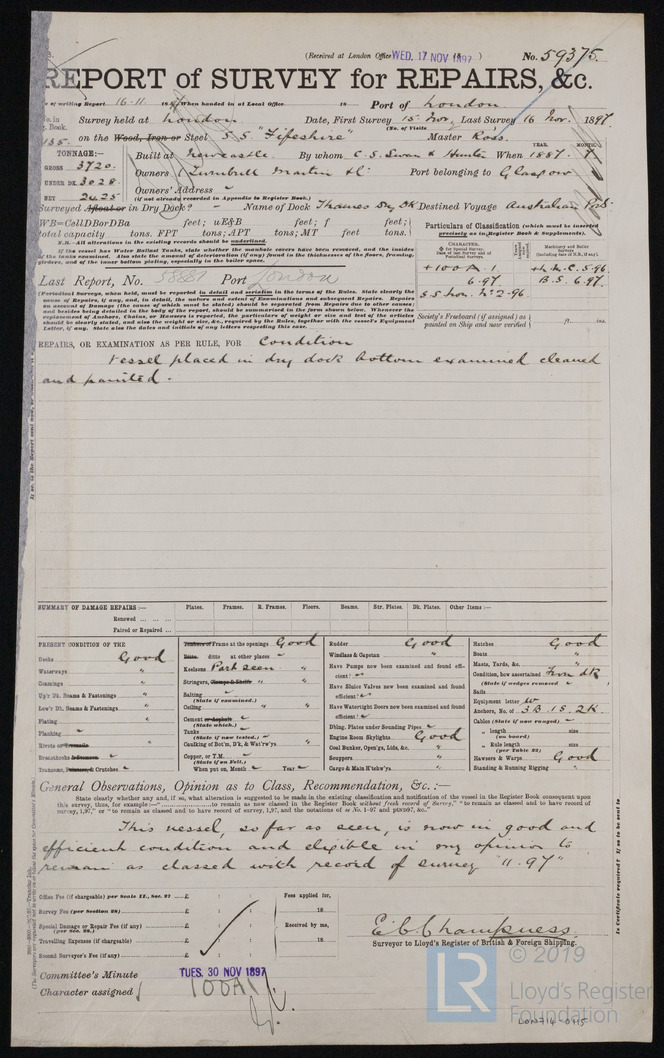 (Received at London Office WED. 17 NOV 1897)
No. 59375.
REPORT of SURVEY for REPAIRS, &c.
of writing Report 16-11 1897 When handed in at Local Office 18 Port of London
No. in Survey held at London Date, First Survey 15 Nov. Last Survey 16 Nov. 1897
Book. (No. of Visits
135 on the Wood, Iron or Steel S.S. "Fifeshire" Master Ross.
TONNAGE:— Built at Newcastle. By whom C. S. Swan & Hunter When 1887. 7
YEAR. MONTH.
GROSS 3720.
Owners Turnbull Martin & Co Port belonging to Glasgow
UNDER DK. 3028.
Owners' Address
NET 2425
(if not already recorded in Appendix to Register Book.)
Surveyed Afloat or in Dry Dock? Name of Dock Thames Dry Dk Destined Voyage Australian Ports
WB=CellDBorDBa feet; uE&B feet; f feet;
total capacity tons. FPT tons; APT tons; MT feet tons.
Particulars of Classification (which must be inserted precisely as in Register Book & Supplements).
N.B.—All alterations in the existing records should be underlined.
If the vessel has Water Ballast Tanks, state whether the manhole covers have been removed, and the insides of the tanks examined. Also state the amount of deterioration (if any) found in the thicknesses of the floors, framing, girders, and of the inner bottom plating, especially in the boiler space.
CHARACTER.
for Special Survey.
Date of last Survey and of Periodical Surveys.
Machinery and Boiler Surveys (including date of N.B., if any).
+100A.1 +L.M.C. 5.96
6.97 B.S. 6.97.
S.S. Lon. No 2-96.
Last Report, No. 58881 Port London
(Periodical Surveys, when held, must be reported in detail and seriatim in the terms of the Rules. State clearly the cause of Repairs, if any, and, in detail, the nature and extent of Examinations and subsequent Repairs. Repairs on account of Damage (the cause of which must be stated) should be separated from Repairs due to other causes; and besides being detailed in the body of the report, should be summarised in the form shown below. Whenever the replacement of Anchors, Chains, or Hawsers is reported, the particulars of weight or size and test of the articles should be clearly stated, and also the weight or size, &c., required by the Rules, together with the vessel's Equipment Letter, if any. State also the dates and initials of any letters respecting this case.
Society's Freeboard (if assigned) as painted on Ship and now verified ft. ins.
REPAIRS, OR EXAMINATION AS PER RULE, FOR Condition
Vessel placed in dry dock bottom examined cleaned
and painted.
SUMMARY OF DAMAGE REPAIRS:— Plates. Frames. R. Frames. Floors. Beams. Str. Plates. Dk. Plates. Other Items:—
Renewed
Paired or Repaired
PRESENT CONDITION OF THE
Decks Good
Waterways "
Coamings "
Up'r Dk. Beams & Fastenings "
Low'r Dk. Beams & Fastenings "
Plating "
Planking
Rivets or Treenails "
Breasthooks
Transoms, Pointers & Crutches
Timbers or Frame at the openings Good
Ditto ditto at other places
Keelsons Part seen
Stringers, Clamps & Shelfs "
Salting
(State if examined.)
Ceiling "
Cement or Asphalt
(State which.)
Tanks
(State if now tested.)
Caulking of Bot'm, D'k, & Wat'rw'ys "
Copper, or Y.M.
(State if on Felt.)
When put on, Month Year
Rudder Good
Windlass & Capstan "
Have Pumps now been examined and found efficient?
Have Sluice Valves now been examined and found efficient?
Have Watertight Doors now been examined and found efficient?
Dblng. Plates under Sounding Pipes
Engine Room Skylights Good
Coal Bunker, Open'gs, Lids, &c. "
Scuppers "
Cargo & Main H'tchw'ys "
Hatches Good
Boats "
Masts, Yards, &c. "
Condition, how ascertained From dk
(State if wedges removed
Sails
Equipment letter W
Anchors, No. of 3B. 1S. 2K.
Cables (State if now ranged)
" length size
(on board)
" Rule length size
(per Table 22)
Hawsers & Warps Good
Standing & Running Rigging "
General Observations, Opinion as to Class, Recommendation, &c.:—
State clearly whether any, and if so, what alteration is suggested to be made in the existing classification and notification of the vessel in the Register Book consequent upon this survey, thus, for example:—" to remain as now classed in the Register Book without fresh record of Survey," "to remain as classed and to have record of survey, 1,97," or "to remain as classed and to have record of survey, 1,97, and the notations of ss No. 1-97 and PTND97, &c."
This vessel, so far as seen, is now in good and
efficient condition and eligible in my opinion to
remain as classed with record of survey "11.97"
Office Fee (if chargeable) per Scale II., Sec. 27 £ : :
Survey Fee (per Section 28) £ : :
Special Damage or Repair Fee (if any) £ : :
(per Sec. 28.)
Travelling Expenses (if chargeable) £ : :
Second Surveyor's Fee (if any) £ : :
Fees applied for,
18
Received by me,
18
E. C. Champness.
Surveyor to Lloyd's Register of British & Foreign Shipping.
Committee's Minute TUES. 30 NOV 1897
Character assigned 100A1
© 2019
LR
Lloyd's Register
Foundation
LON714-0115